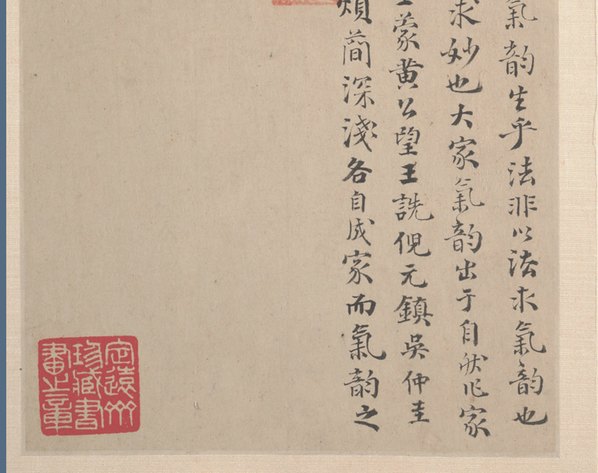 氣韵生乎法非以法求氣韵也
求妙也大家氣韵出于自然作家
蒙黄公望王詵倪元鎮吳仲圭
煩蕳深淺各自成家而氣韵之
定遠
珍藏書
畫之章